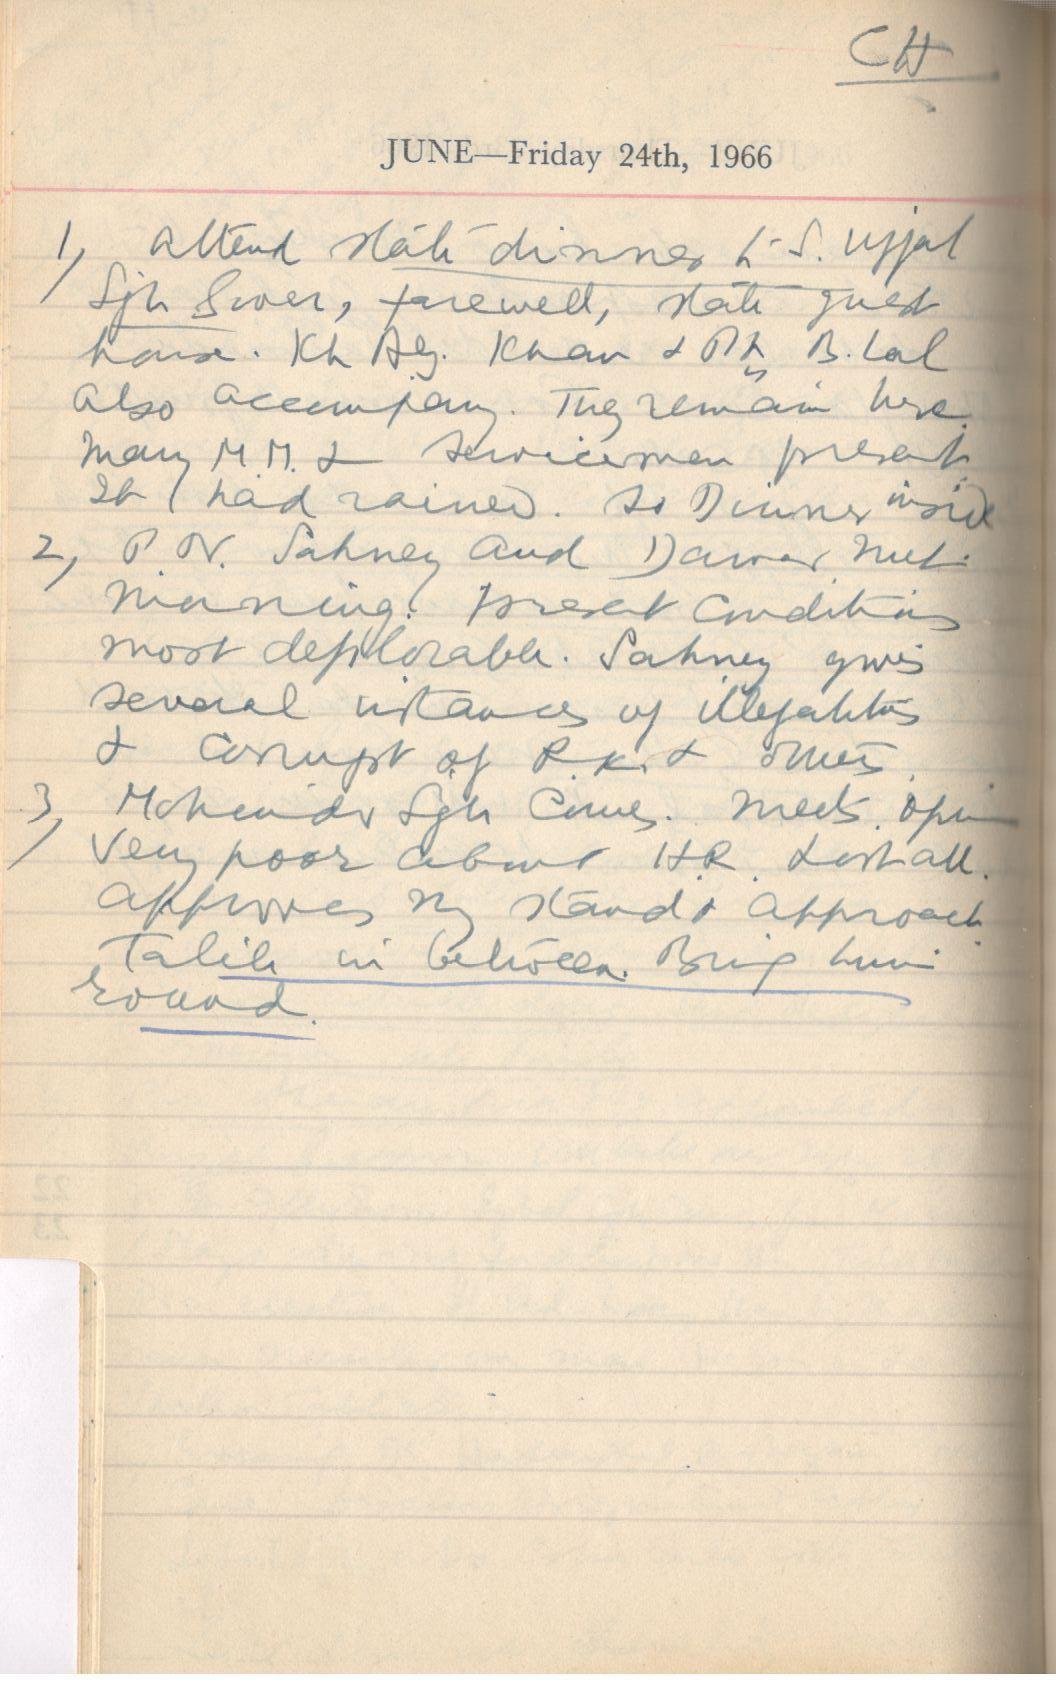 CH
JUNE—Friday 24th, 1966
1, Attend state dinner to S. Ujjal
Sgh Gover, farewell, state guest
house. Kh Alg. Khan & Pt. B. Lal
also accompany. They remain here.
Many M.M. & servicemen present
It had rained. So Dinner inside
2, P. N. Sahney and Dawar meet
morning. Present Conditions
most deplorable. Sahney gives
several instances of illegalities
& Corrupt of R.K. & others.
3, Mohinder Sgh Comes. Meets. Opin
very poor about H.R. & all.
Approves my stand & approach
Talib in between. Bring him
round.